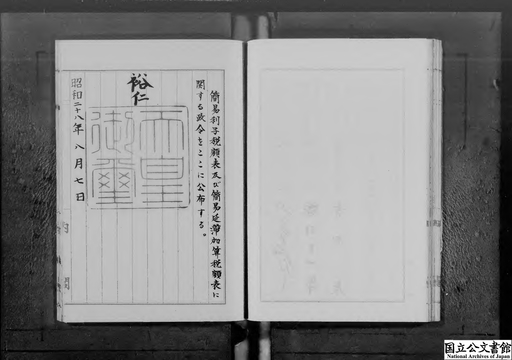 簡易利子税額表及び簡易延滞加算税額表に
関する政令をここに公布する。
裕仁
天皇御璽
昭和二十八年八月七日
国立公文書館
National Archives of Japan